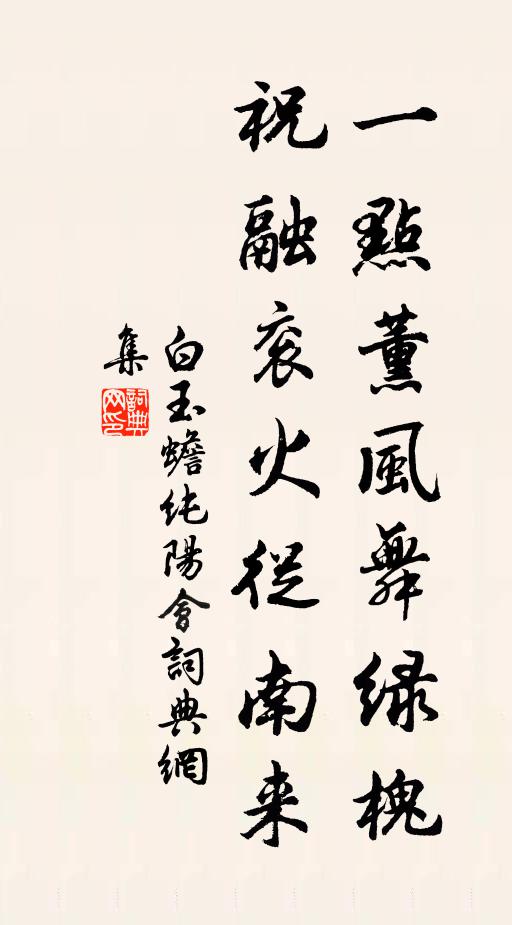 一點薰風舞绿槐
祝融衮火從南来
白玉蟾纯陽會詞典網
集
詞典网印